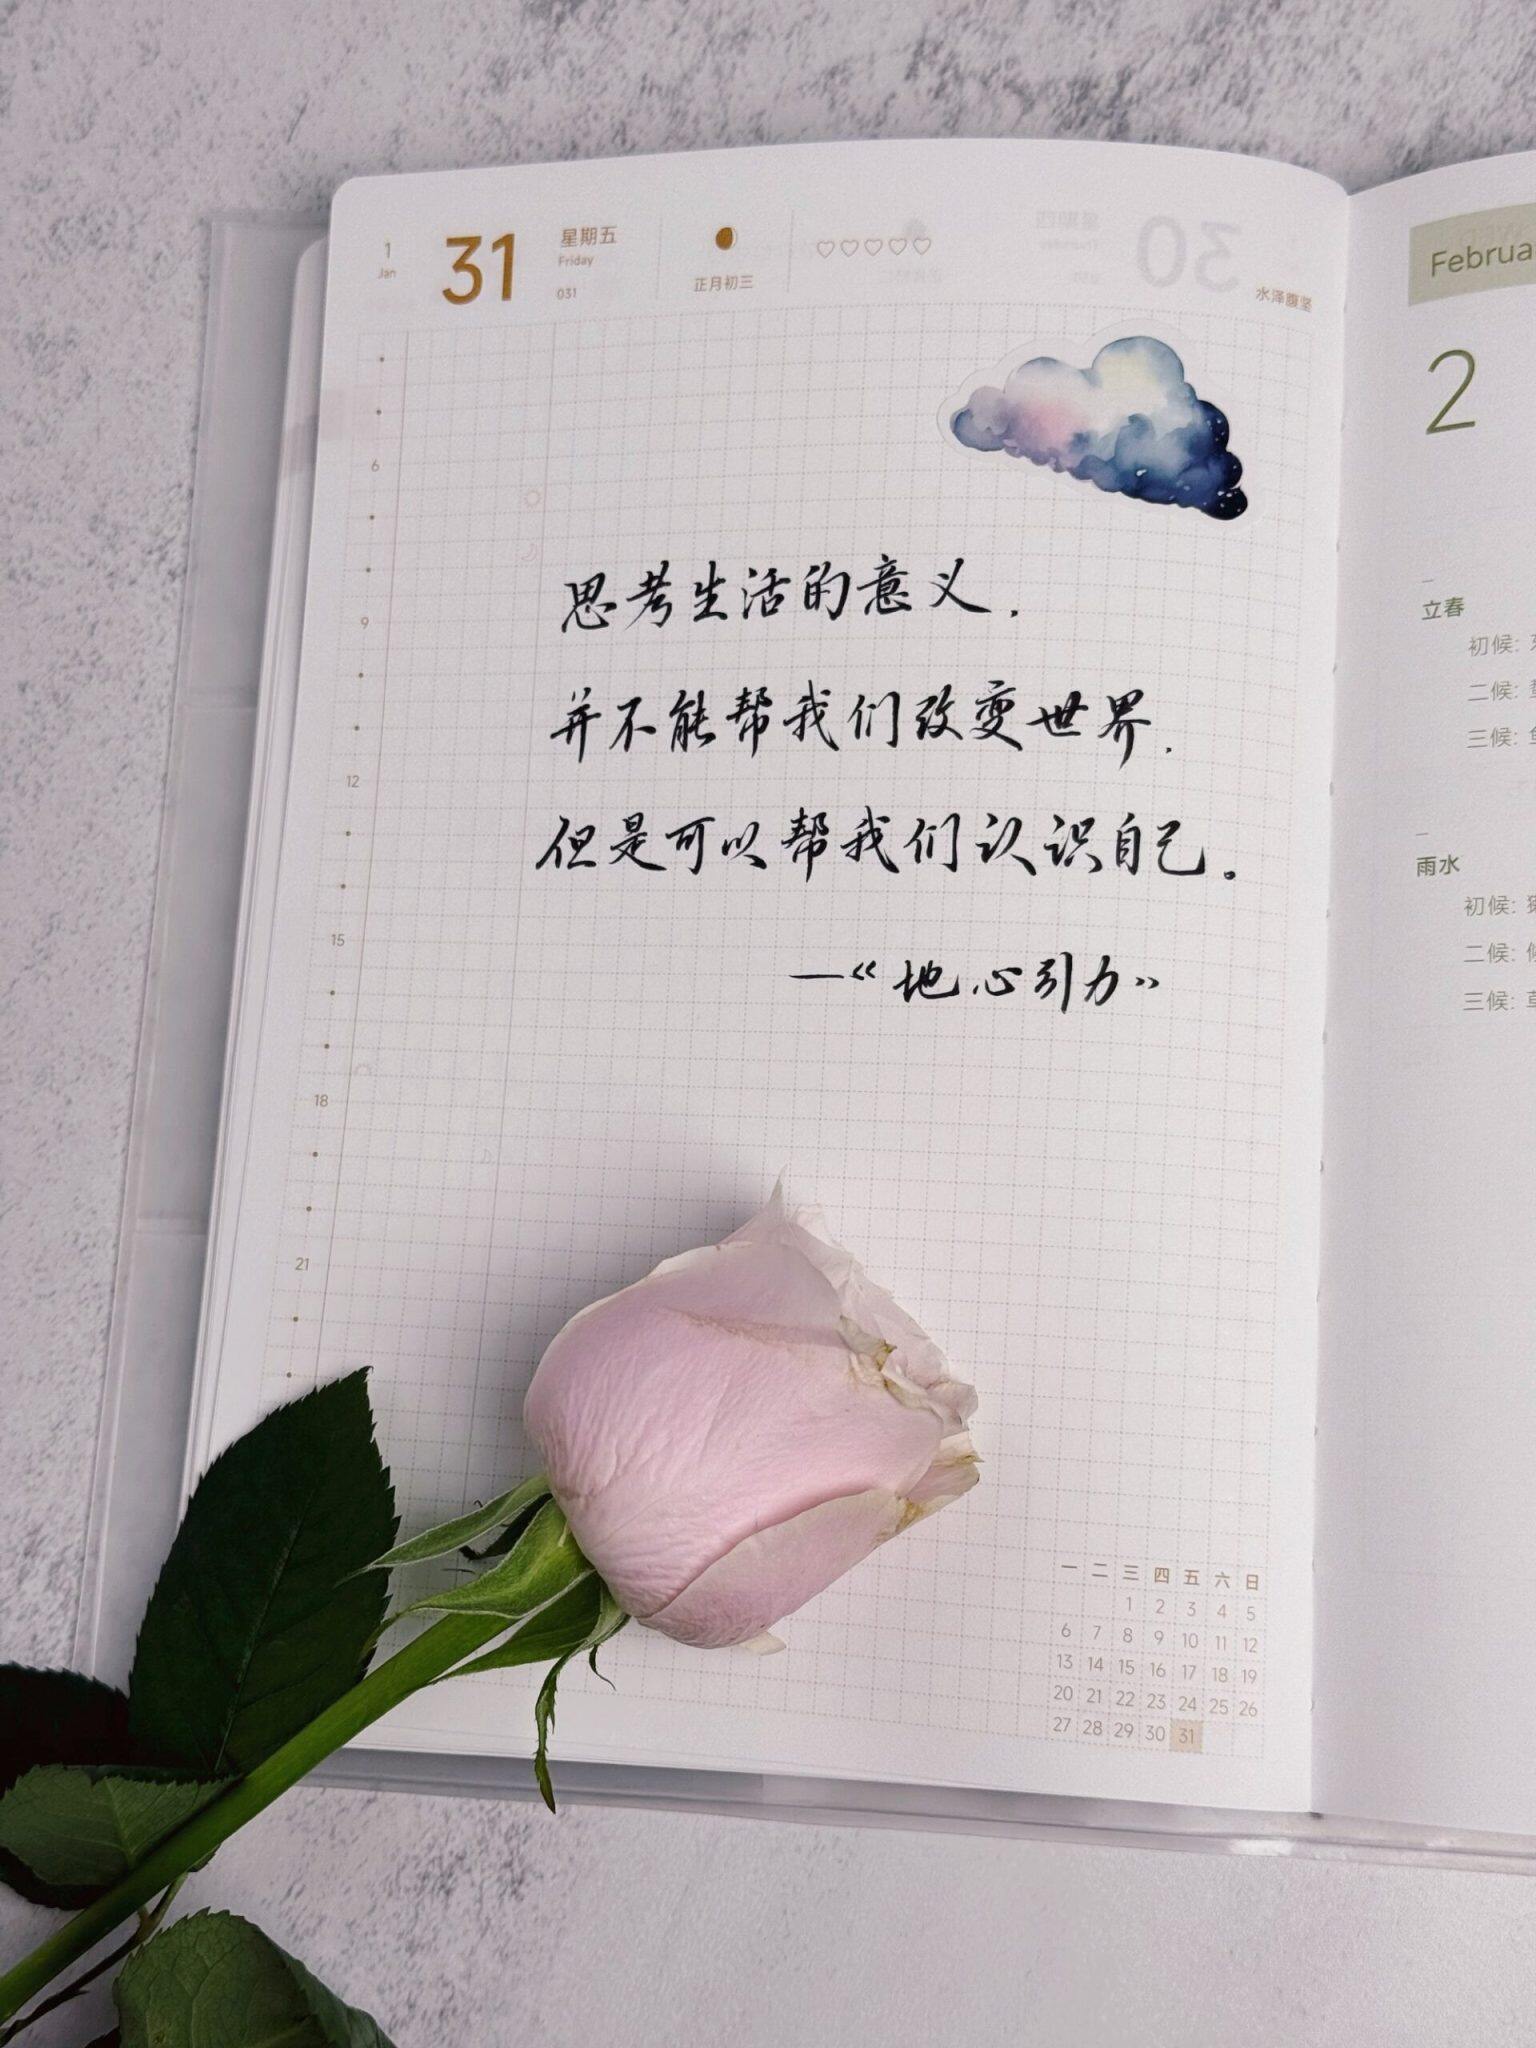 1
Jan
31
星期五
Friday
031
正月初三
30
水泽腹坚
6
9
12
15
18
21
思考生活的意义.
并不能帮我们改变世界.
但是可以帮我们认识自己。
—《地心引力》
一 二 三 四 五 六 日
1 2 3 4 5
6 7 8 9 10 11 12
13 14 15 16 17 18 19
20 21 22 23 24 25 26
27 28 29 30 31
Februa
2
立春
初候:
二候:
三候:
雨水
初候:
二候:
三候: